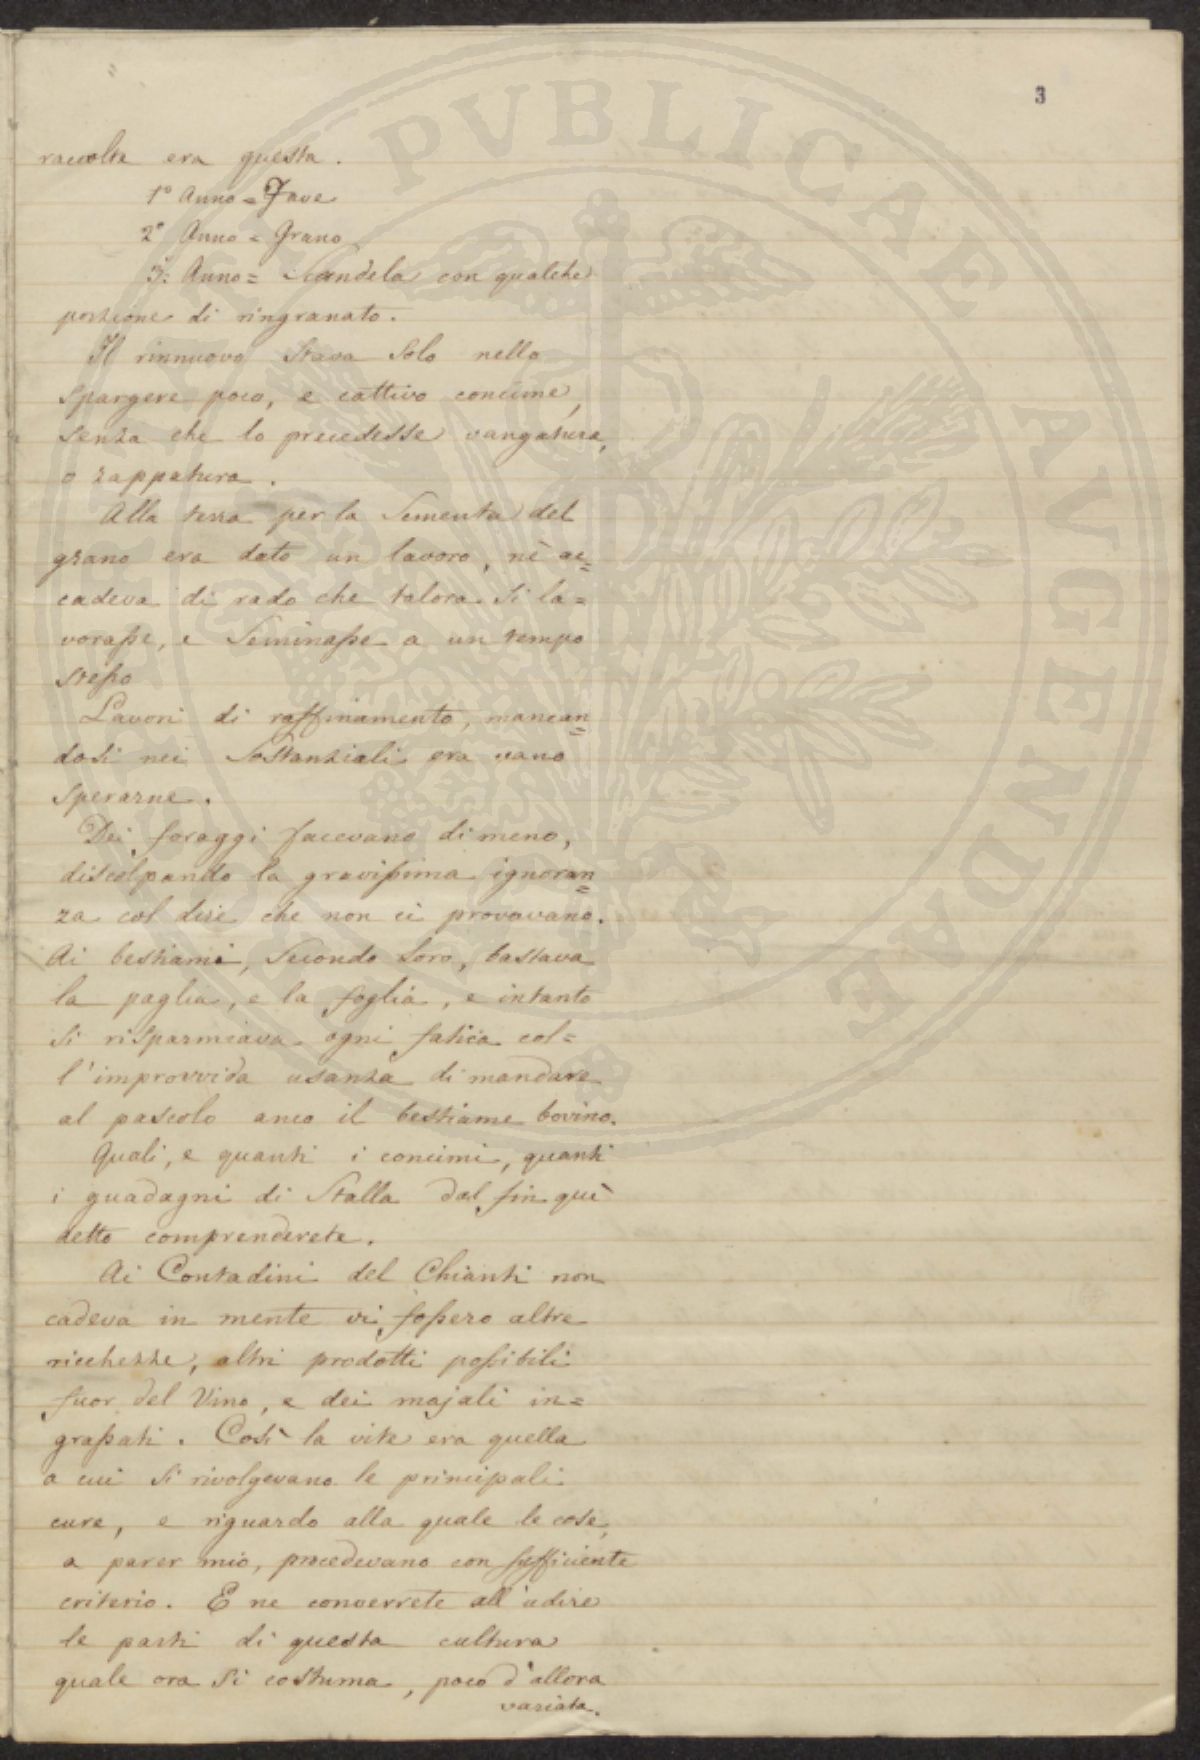 3
raccolta era questa.
1° Anno = Fave
2° Anno = Grano
3: Anno = Scandela con qualche
porzione di ringranato.
Il rinnuovo stava solo nello
spargere poco, e cattivo concime,
senza che lo precedesse vangatura,
o zappatura.
Alla terra per la sementa del
grano era dato un lavoro, nè ac=
cadeva di rado che talora si la=
vorasse, e seminasse a un tempo
stesso
Lavori di raffinamento, mancan=
dosi nei sostanziali era vano
sperarne.
Dei foraggi facevano di meno,
discolpando la gravissima ignoran=
za col dire che non ci provavano.
Ai bestiami, secondo loro, bastava
la paglia, e la foglia, e intanto
si risparmiava ogni fatica col=
l'improvvida usanza di mandare
al pascolo anco il bestiame bovino.
Quali, e quanti i concimi, quanti
i guadagni di stalla dal fin quì
detto comprenderete.
Ai Contadini del Chianti non
cadeva in mente vi fossero altre
ricchezze, altri prodotti possibili
fuor del Vino, e dei majali in=
grassati. Così la vite era quella
a cui si rivolgevano le principali
cure, e riguardo alla quale le cose,
a parer mio, procedevano con sufficiente
criterio. E ne converrete all'udire
le parti di questa cultura
quale ora si costuma, poco d'allora
variata.
PVBLICAE AVGENDAE